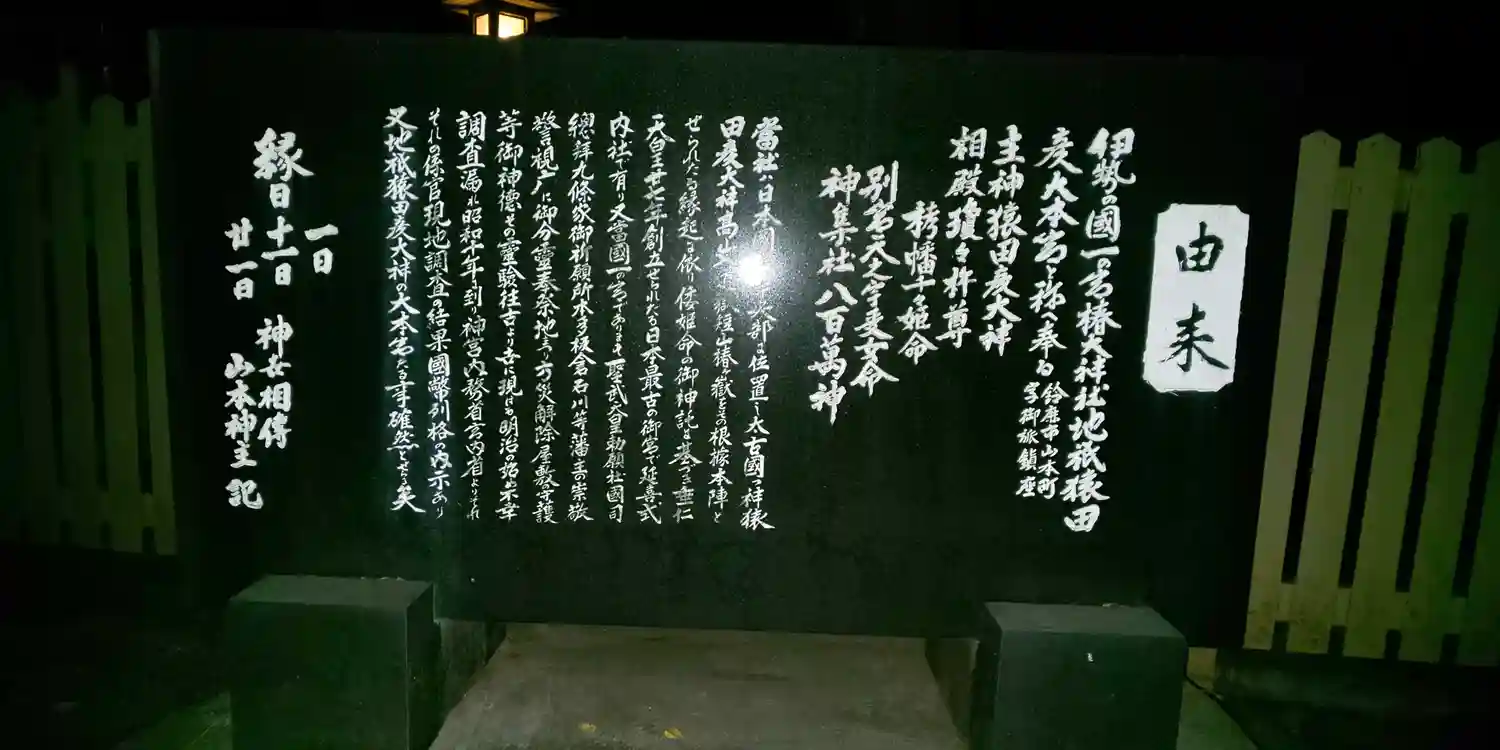 由来
伊勢の國一の宮椿大神社地祇猿田
彦大本宮と称へ奉る 鈴鹿市山本町
宮御旅鎮座
主神猿田彦大神
相殿瓊々杵尊
栲幡千々姫命
別宮天之宇受女命
神阜社八百萬神
當社ハ日本國 大部に位置し太古國つ神猿
田彦大神高山 短山椿ヶ嶽をその根據本陣と
せられたる縁起に依り倭姫命の御神託に基づき垂仁
天皇廿七年創立せられたる日本最古の御宮で延喜式
内社で有り又當國一の宮であります聖武天皇勅願社國司
總拝九條家御祈願所本多板倉石川等藩主の崇敬
警視庁に御分霊奉祭地まつり方災解除屋敷の守護
等御神徳その霊験往古より世に現はる明治の始末幸
調査漏れ昭和十年に到り神宮内務省宮内省よりそれ
それの係官現地調査の結果國幣列格の内示あり
又地祇猿田彦大神の大本宮たる事確然とせらる矣
一日
縁日 十一日 神女相傳
廿一日 山本神主記